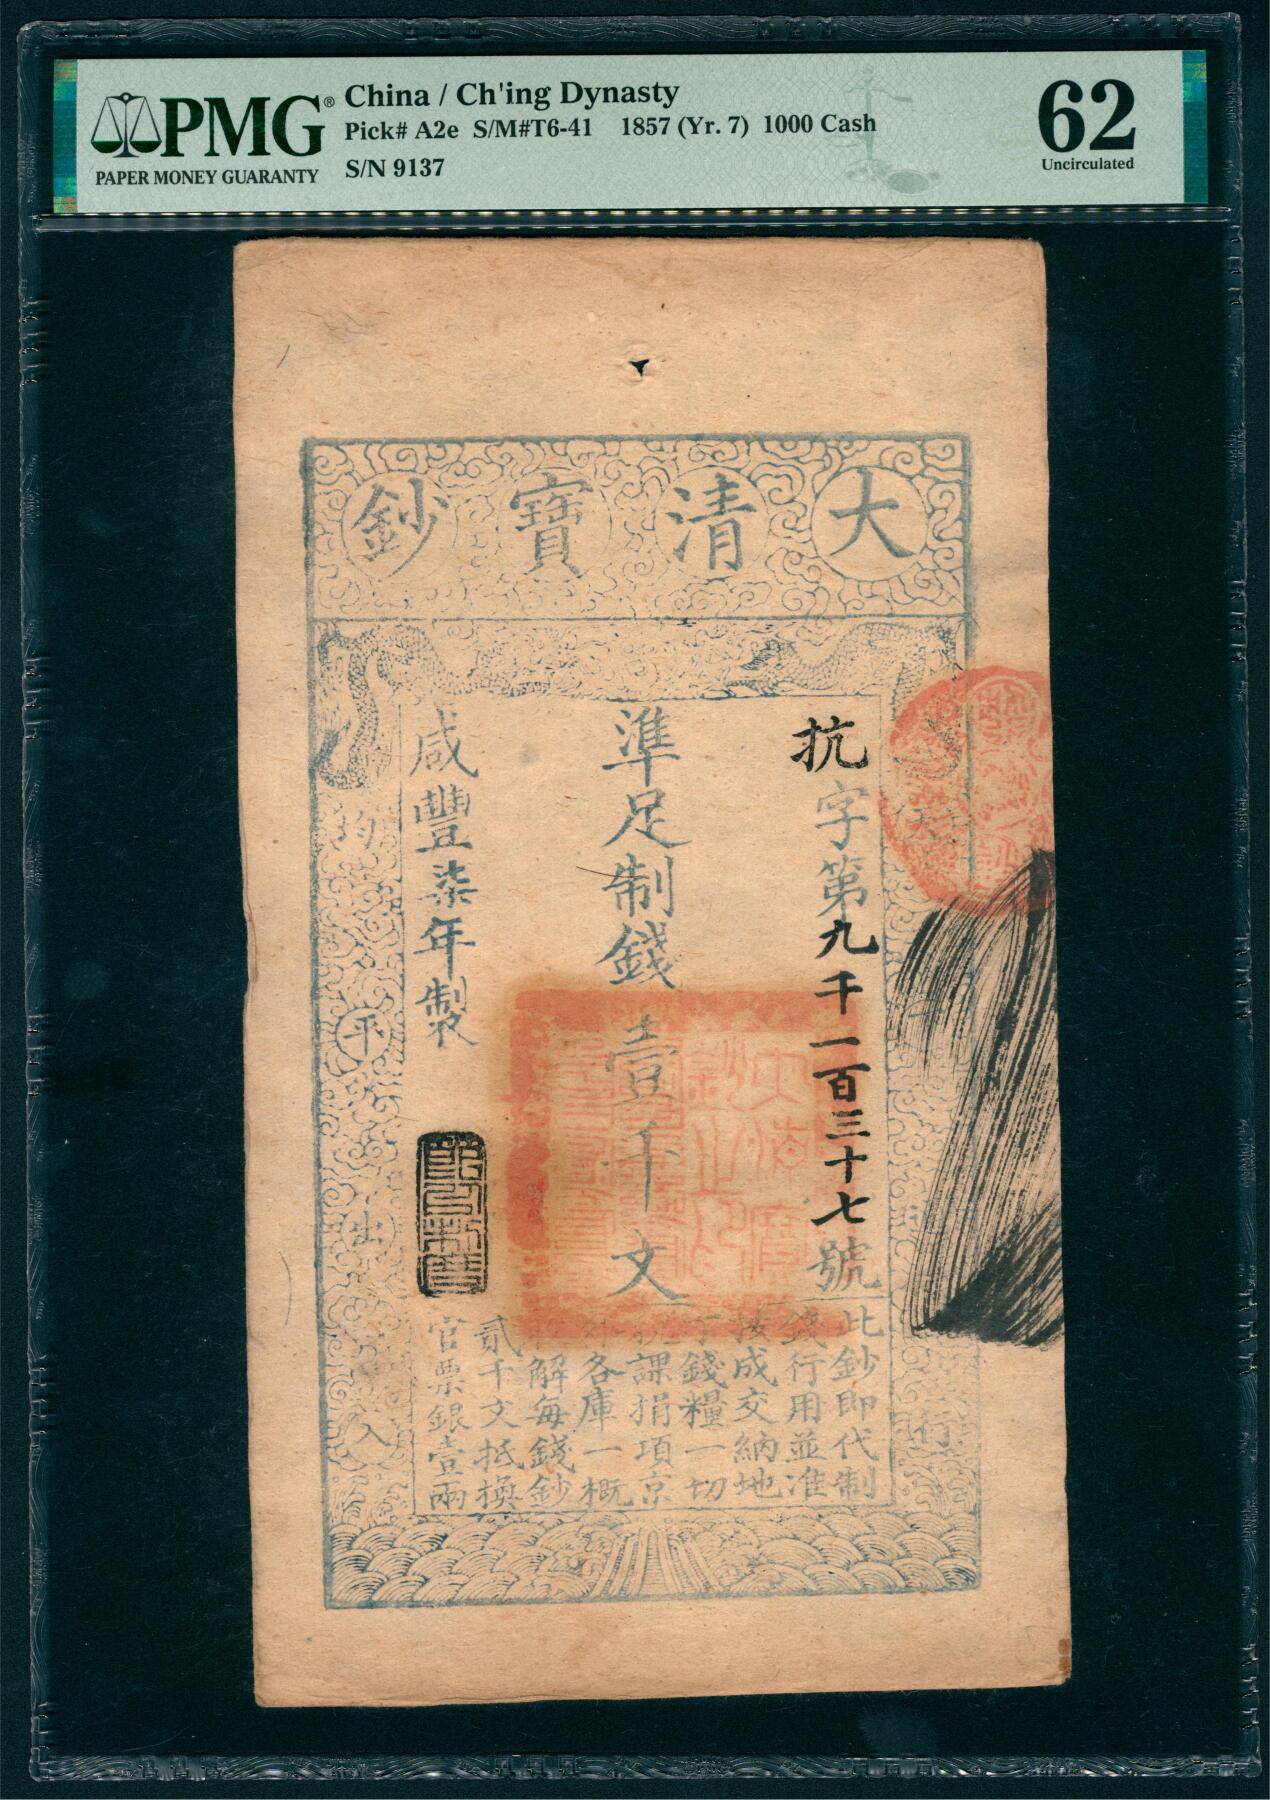 PMG®
PAPER MONEY GUARANTY
China / Ch'ing Dynasty
Pick# A2e S/M#T6-41 1857 (Yr. 7) 1000 Cash
S/N 9137
62
Uncirculated
大清寶鈔
天
行
抗字第九千一百三十七號
準足制錢壹千文
咸豐柒年製
均平出入
此鈔即代制
錢行用並准
按成交納地
丁錢糧一切
稅課捐項京
外各庫一概
收解每錢鈔
貳千文抵換
官票銀壹兩